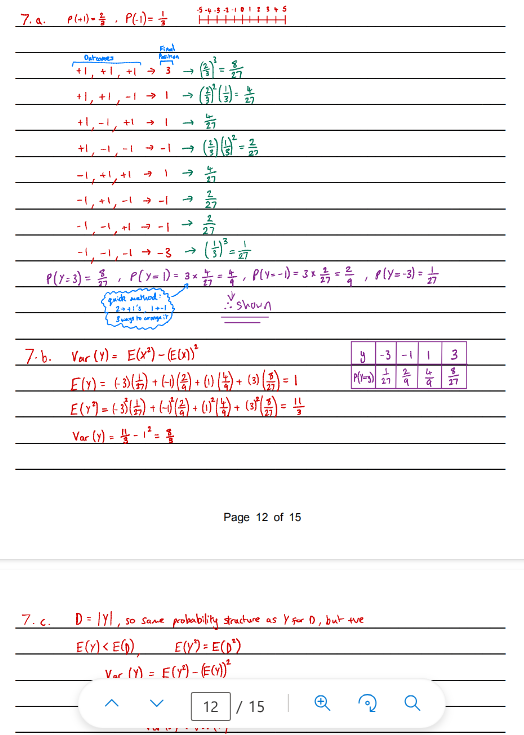 7.a. P(+1) = 2/3 , P(-1) = 1/3 -5 -4 -3 -2 -1 0 1 2 3 4 5
Outcomes Final Position
+1, +1, +1 → 3 → (2/3)³ = 8/27
+1, +1, -1 → 1 → (2/3)²(1/3) = 4/27
+1, -1, +1 → 1 → 4/27
+1, -1, -1 → -1 → (2/3)(1/3)² = 2/27
-1, +1, +1 → 1 → 4/27
-1, +1, -1 → -1 → 2/27
-1, -1, +1 → -1 → 2/27
-1, -1, -1 → -3 → (1/3)³ = 1/27
P(Y=3) = 8/27 , P(Y=1) = 3 × 4/27 = 4/9 , P(Y=-1) = 3 × 2/27 = 2/9 , P(Y=-3) = 1/27
quick method:
2 +1's, 1 -1
3 ways to arrange it
∴ shown
7.b. Var(Y) = E(X²) - (E(X))²
y -3 -1 1 3
P(Y=y) 1/27 2/9 4/9 8/27
E(Y) = (-3)(1/27) + (-1)(2/9) + (1)(4/9) + (3)(8/27) = 1
E(Y²) = (-3)²(1/27) + (-1)²(2/9) + (1)²(4/9) + (3)²(8/27) = 11/3
Var(Y) = 11/3 - 1² = 8/3
Page 12 of 15
7.c. D = |Y|, so same probability structure as Y for D, but +ve
E(Y) < E(D), E(Y²) = E(D²)
Var (Y) = E(Y²) - (E(Y))²
12 / 15